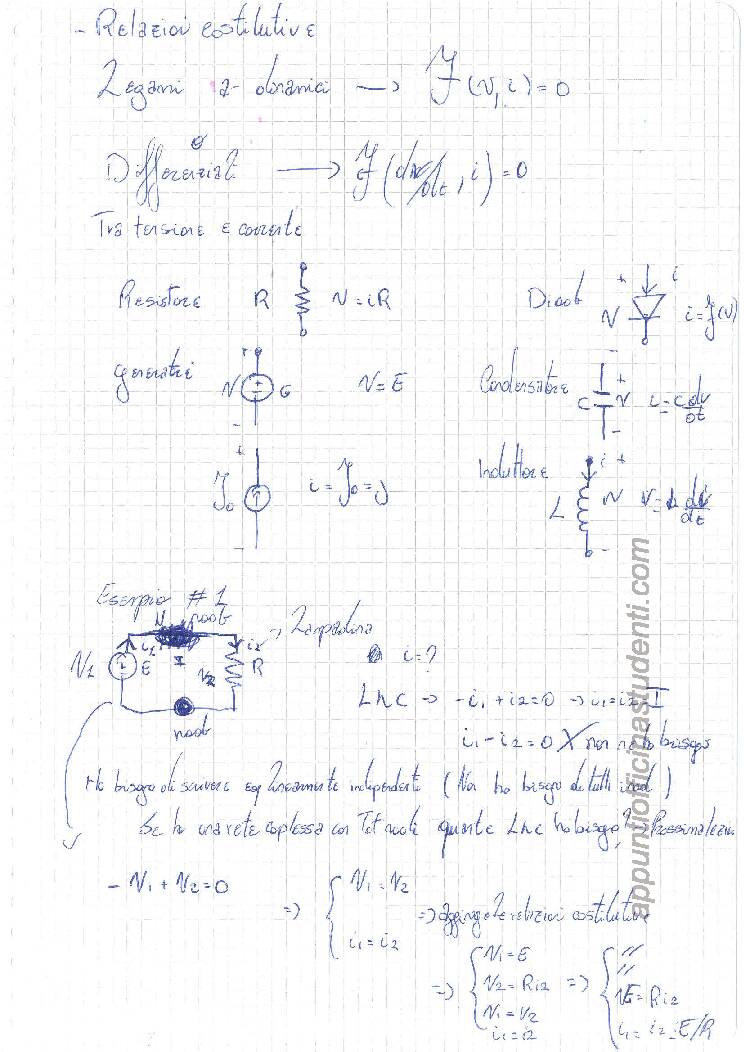 - Relazioi costitutive
Legami a-dinamici → F(v, i) = 0
o
Differenziali → F(dv/dt, i) = 0
Tra tensione e corrente
Resistore R v = iR
Diodo + i v i = f(v)
generatori v + - G v = E
Condensatore C + v - i = C dv/dt
J₀ i = J₀ = J
Induttore i + L v - v = L di/dt
Esempio # 1
nodo
Lampadina
V₁ E i₁ I i₂ v₂ R
i = ?
nodo
LKC → -i₁ + i₂ = 0 → i₁ = i₂ = I
i₁ - i₂ = 0 X non ne ho bisogno
Ho bisogno di scrivere eq linearmente indipendente (Non ho bisogno di tutti i nodi)
Se ho una rete coplessa con Tot nodi quante LKC ho bisogno? → Prossima lezione
- V₁ + V₂ = 0
⇒ { V₁ = V₂
i₁ = i₂
⇒ aggiungo le relazioni costitutive
⇒ { V₁ = E
V₂ = R i₂
V₁ = V₂
i₁ = i₂
⇒ { //
//
E = R i₂
i₁ = i₂ = E/R
appuntiofficinastudenti.com